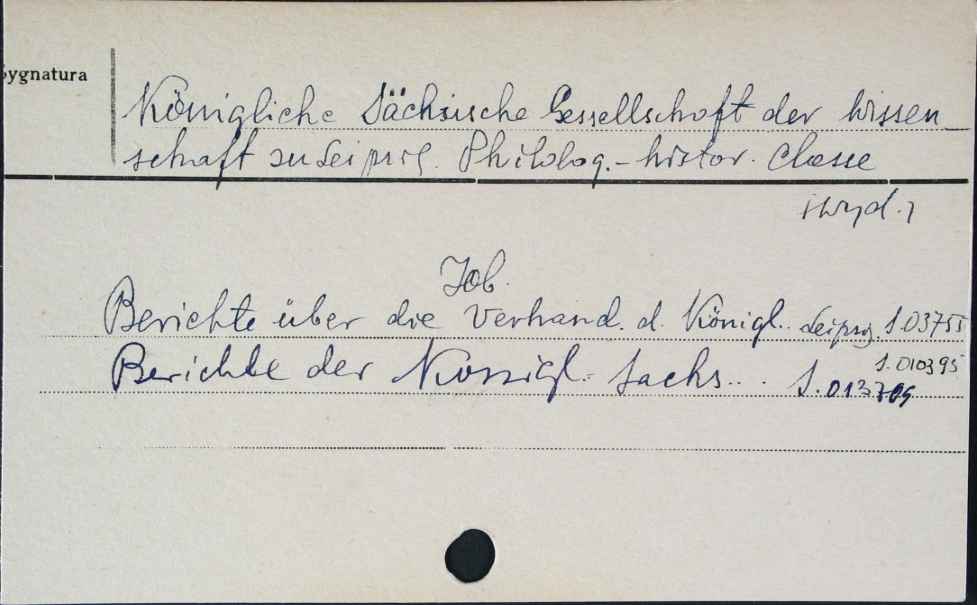 Sygnatura
Königliche Sächsische Gessellschaft der Wissen
schaft zu Leipzig. Philolog.-histor. Classe
Zob.
Berichte über die Verhand. d. Königl.. Leipzig. S.03755
Berichte der Königl.. Sachs... S.010395
S.013709